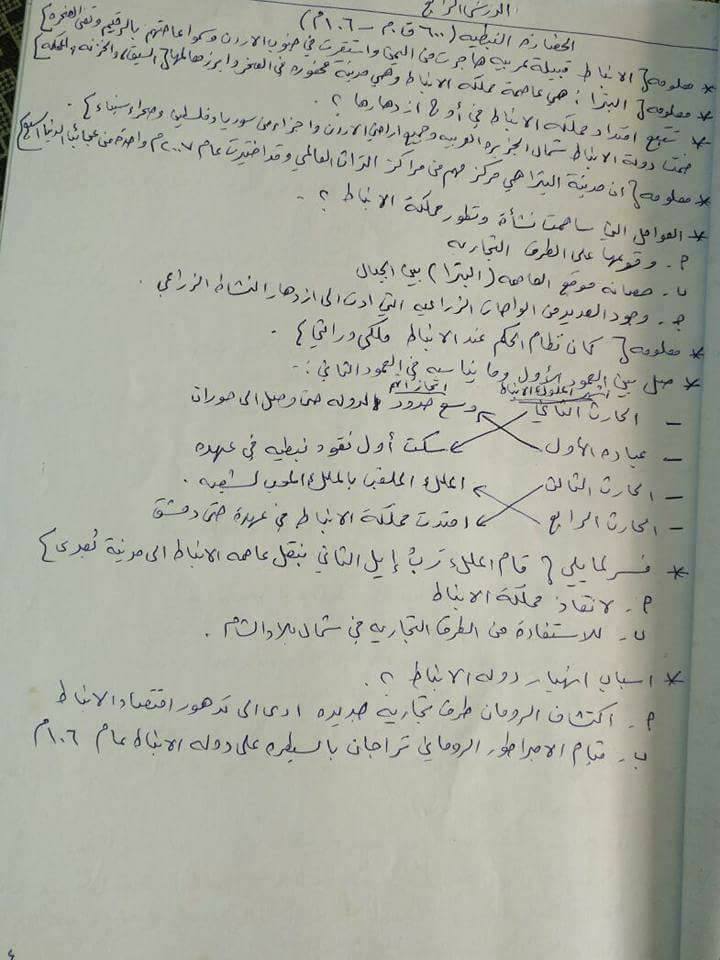 الدرس الرابع
الحضارة النبطيه (٦٠٠ ق.م – ١٠٦م)
* معلومه { الانباط قبيلة عربيه هاجرت من اليمن واستقرت في جنوب الاردن وسموا عاصمتهم بالرقيم وتعني الصخره }
* معلومه { البترا : هي عاصمة مملكة الانباط وهي مدينة محفوره في الصخر وابرز معالمها { السيق، والخزنه، المحكمه }
* تتبع امتداد مملكة الانباط في أوج ازدهارها ؟ .
ضمت دولة الانباط شمال الجزيره العربيه وجميع اراضي الاردن واجزاء من سوريا وفلسطين وصحراء سيناء } .
* معلومه { ان مدينة البترا هي مركز مهم من مراكز التراث العالمي وقد اختيرت عام ٢٠٠٧م واحدة من عجائب الدنيا السبع }
* العوامل التي ساهمت نشأة وتطور مملكة الانباط ؟ .
أ. وقوعها على الطرق التجاريه
ب. حصانة موقع العاصمه (البترا) بين الجبال
جـ. وجود العديد من الواحات الزراعيه التي ادت الى ازدهار النشاط الزراعي .
* معلومه { كان نظام الحكم عند الانباط ملكي وراثي }
* صل بين العمود الأول وما يناسبه في العمود الثاني :-
أشهر الملوك الانباط انجازاتهم
– الحارث الثاني وسع حدود الدوله حتى وصل الى حوران
– عباده الأول سكت أول نقود نبطيه في عهده
– الحارث الثالث الملك الملقب بالملك المحب لشعبه .
– الحارث الرابع امتدت مملكة الانباط في عهدة حتى دمشق
* فسر لما يلي { قام الملك رب إيل الثاني بنقل عاصمه الانباط الى مدينة بُصرى }
أ. لانقاذ مملكة الانباط
ب. للاستفادة من الطرق التجاريه في شمال بلاد الشام .
* اسباب انهيار دوله الانباط ؟ .
أ. اكتشاف الرومان طرق تجاريه جديده ادى الى تدهور اقتصاد الانباط
ب. قيام الامبراطور الروماني تراجان بالسيطره على دوله الانباط عام ١٠٦م
٤